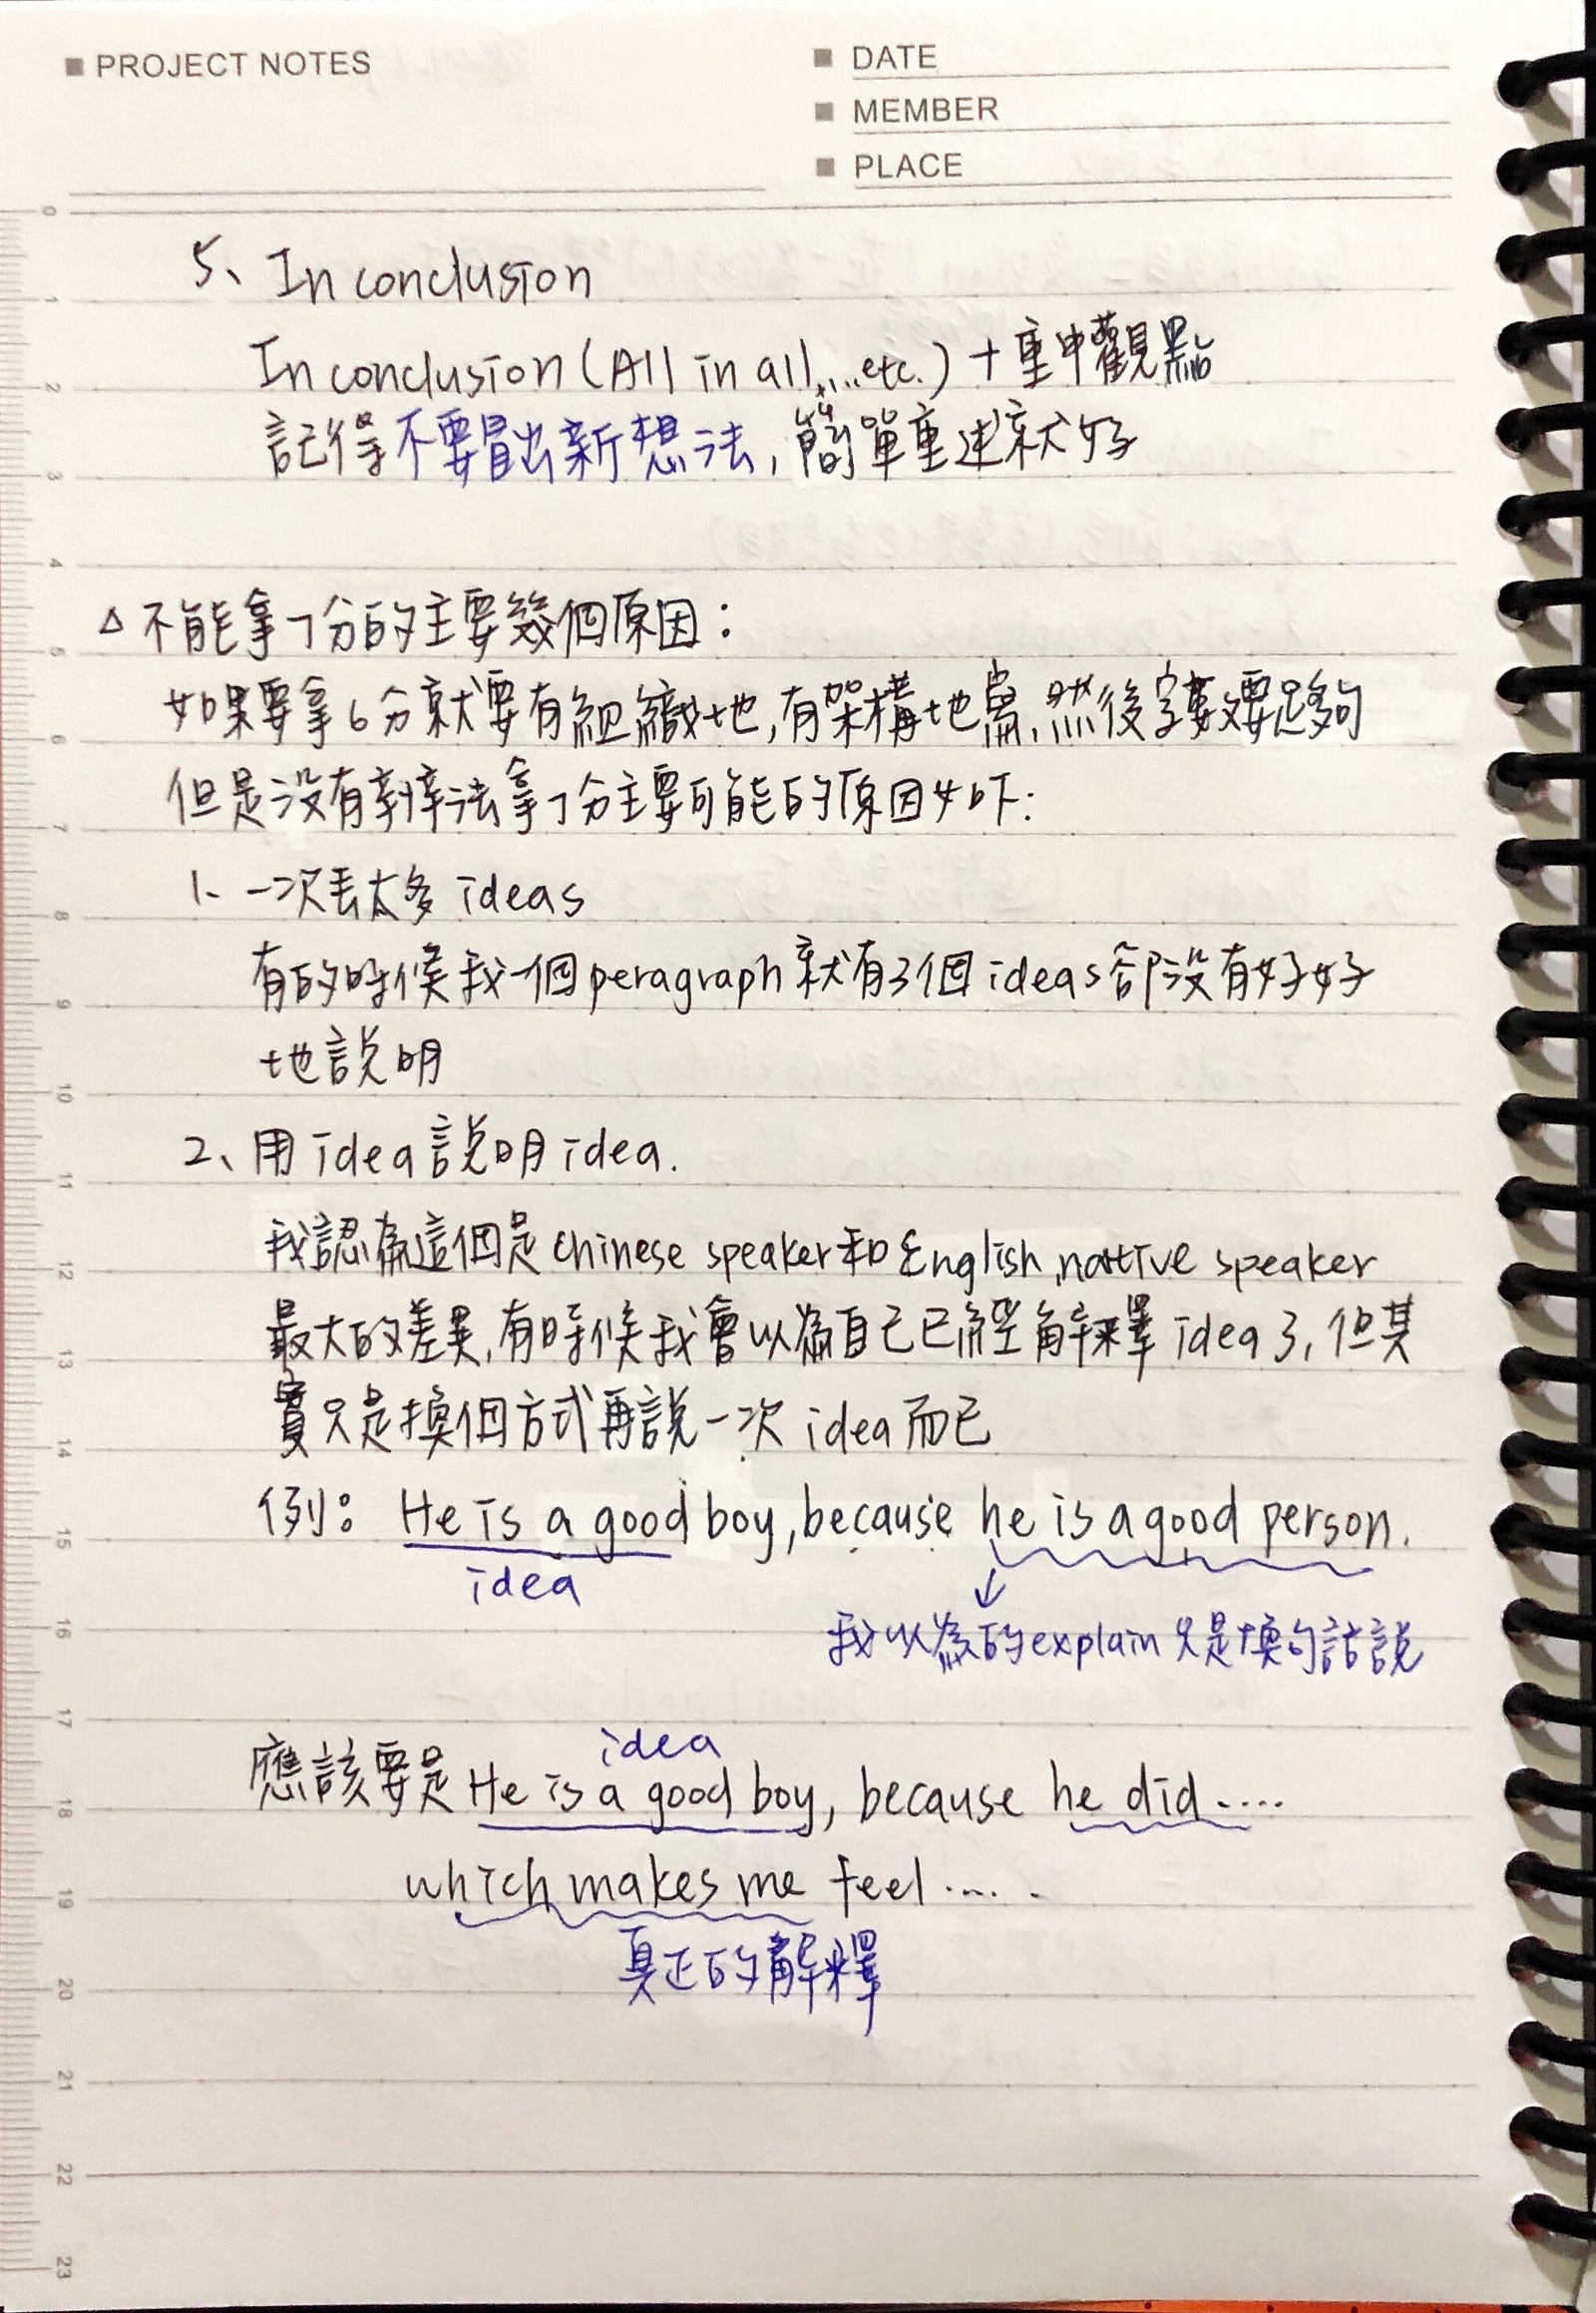 PROJECT NOTES
DATE
MEMBER
PLACE
5、In conclusion
In conclusion (All in all,...etc.) + 重申觀點
記得不要冒出新想法,簡單重述就好
△不能拿7分的主要幾個原因:
如果要拿6分就要有組織地,有架構地寫,然後字數要足夠
但是沒有辦法拿7分主要可能的原因如下:
1、一次丟太多 ideas
有的時候我一個 peragraph 就有3個 ideas 卻沒有好好
地說明
2、用 idea 說明 idea.
我認為這個是 Chinese speaker 和 English native speaker
最大的差異,有時候我會以為自己已經解釋 idea 了,但其
實只是換個方式再說一次 idea 而已
例: He is a good boy, because he is a good person.
idea
我以為的 explain 只是換句話說
idea
應該要是 He is a good boy, because he did....
which makes me feel.....
真正的解釋
0
1
2
3
4
5
6
7
8
9
10
11
12
13
14
15
16
17
18
19
20
21
22
23